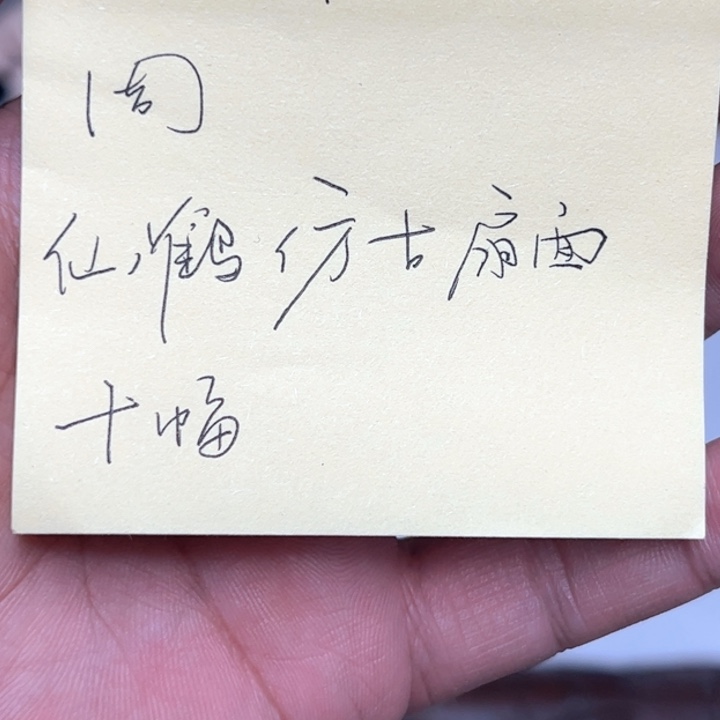 周
仙鹤仿古扇面
十幅